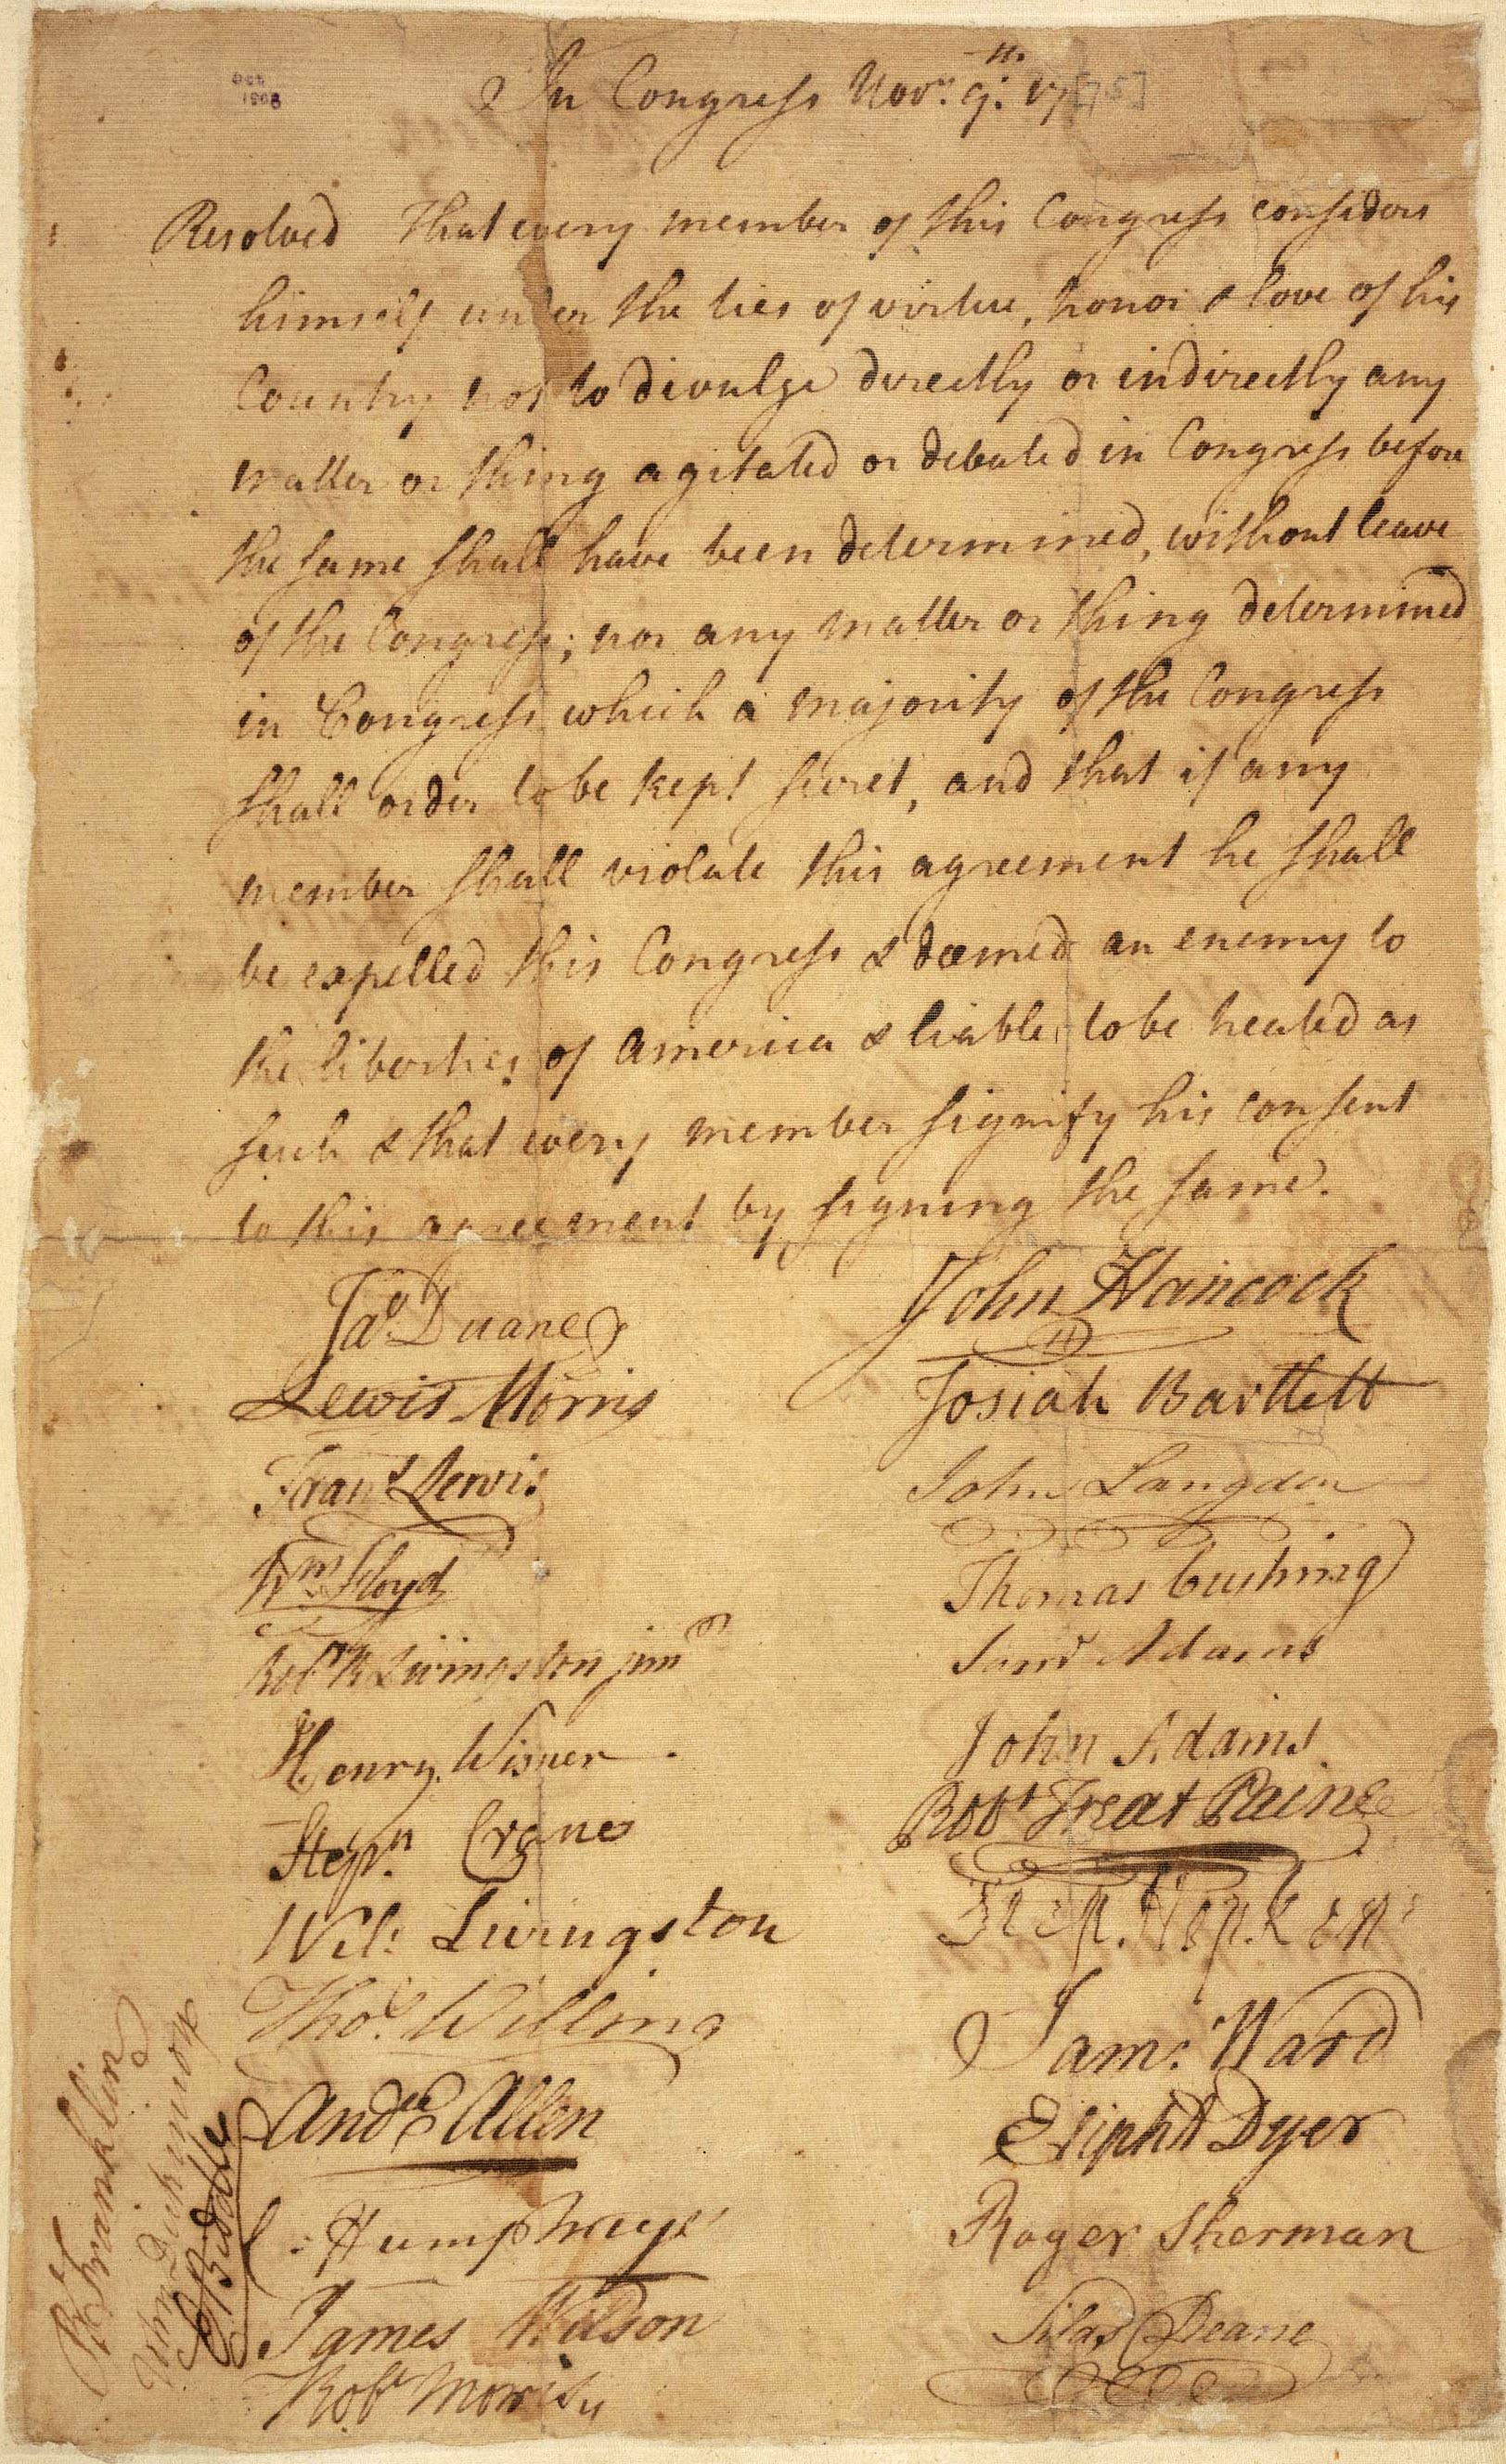 In Congress Novr. 9th. 17[75]
Resolved That every member of this Congress considers
himself under the ties of virtue, honor & love of his
Country not to divulge directly or indirectly any
matter or thing agitated or debated in Congress before
the same shall have been determined, without leave
of the Congress; nor any matter or thing determined
in Congress which a majority of the Congress
shall order to be kept secret, and that if any
member shall violate this agreement he shall
be expelled this Congress & deemed an enemy to
the liberties of America & liable to be treated as
such & that every member signify his consent
to this agreement by signing the same.
Jas. Duane
Lewis Morris
Frans Lewis
Wm Floyd
Robt R Livingston junr
Henry Wisner
Stepn. Crane
Wil: Livingston
Thos. Willing
Andw Allen
C: Humphreys
James Wilson
Robt Morris
John Hancock
Josiah Bartlett
John Langdon
Thomas Cushing
Saml Adams
John Adams
Robt Treat Paine
Step. Hopkins
Sam: Ward
Elipht Dyer
Roger Sherman
Silas Deane
B Franklin
John Dickinson
E Biddle